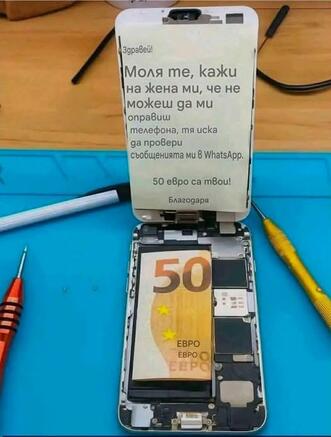 Здравей!
Моля те, кажи
на жена ми, че не
можеш да ми
оправиш
телефона, тя иска
да провери
съобщенията ми в WhatsApp.
50 евро са твои!
Благодаря
50
ЕВРО
ЕВРО
ЕВРО